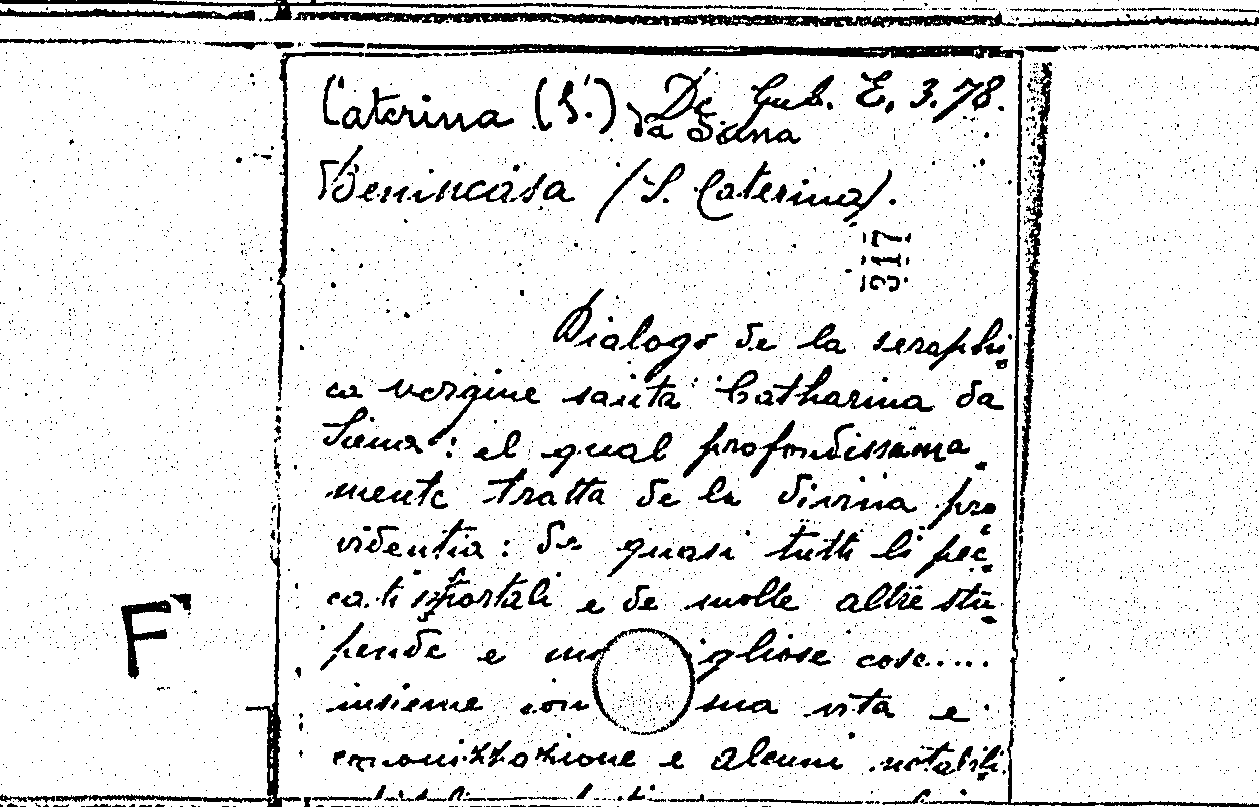 Caterina (S.) De Gub. E. 3.78.
da Siena
Benincasa (S. Caterina).
317
Dialogo de la seraphi
ca vergine santa Catharina da
Siena: el qual profondissima
mente tratta de la divina pro
videntia: de quasi tutti li pec
cati mortali e de molte altre stu
pende e igliose cose.....
insieme con sua vita e
canonizzazione e alcuni notabili
F